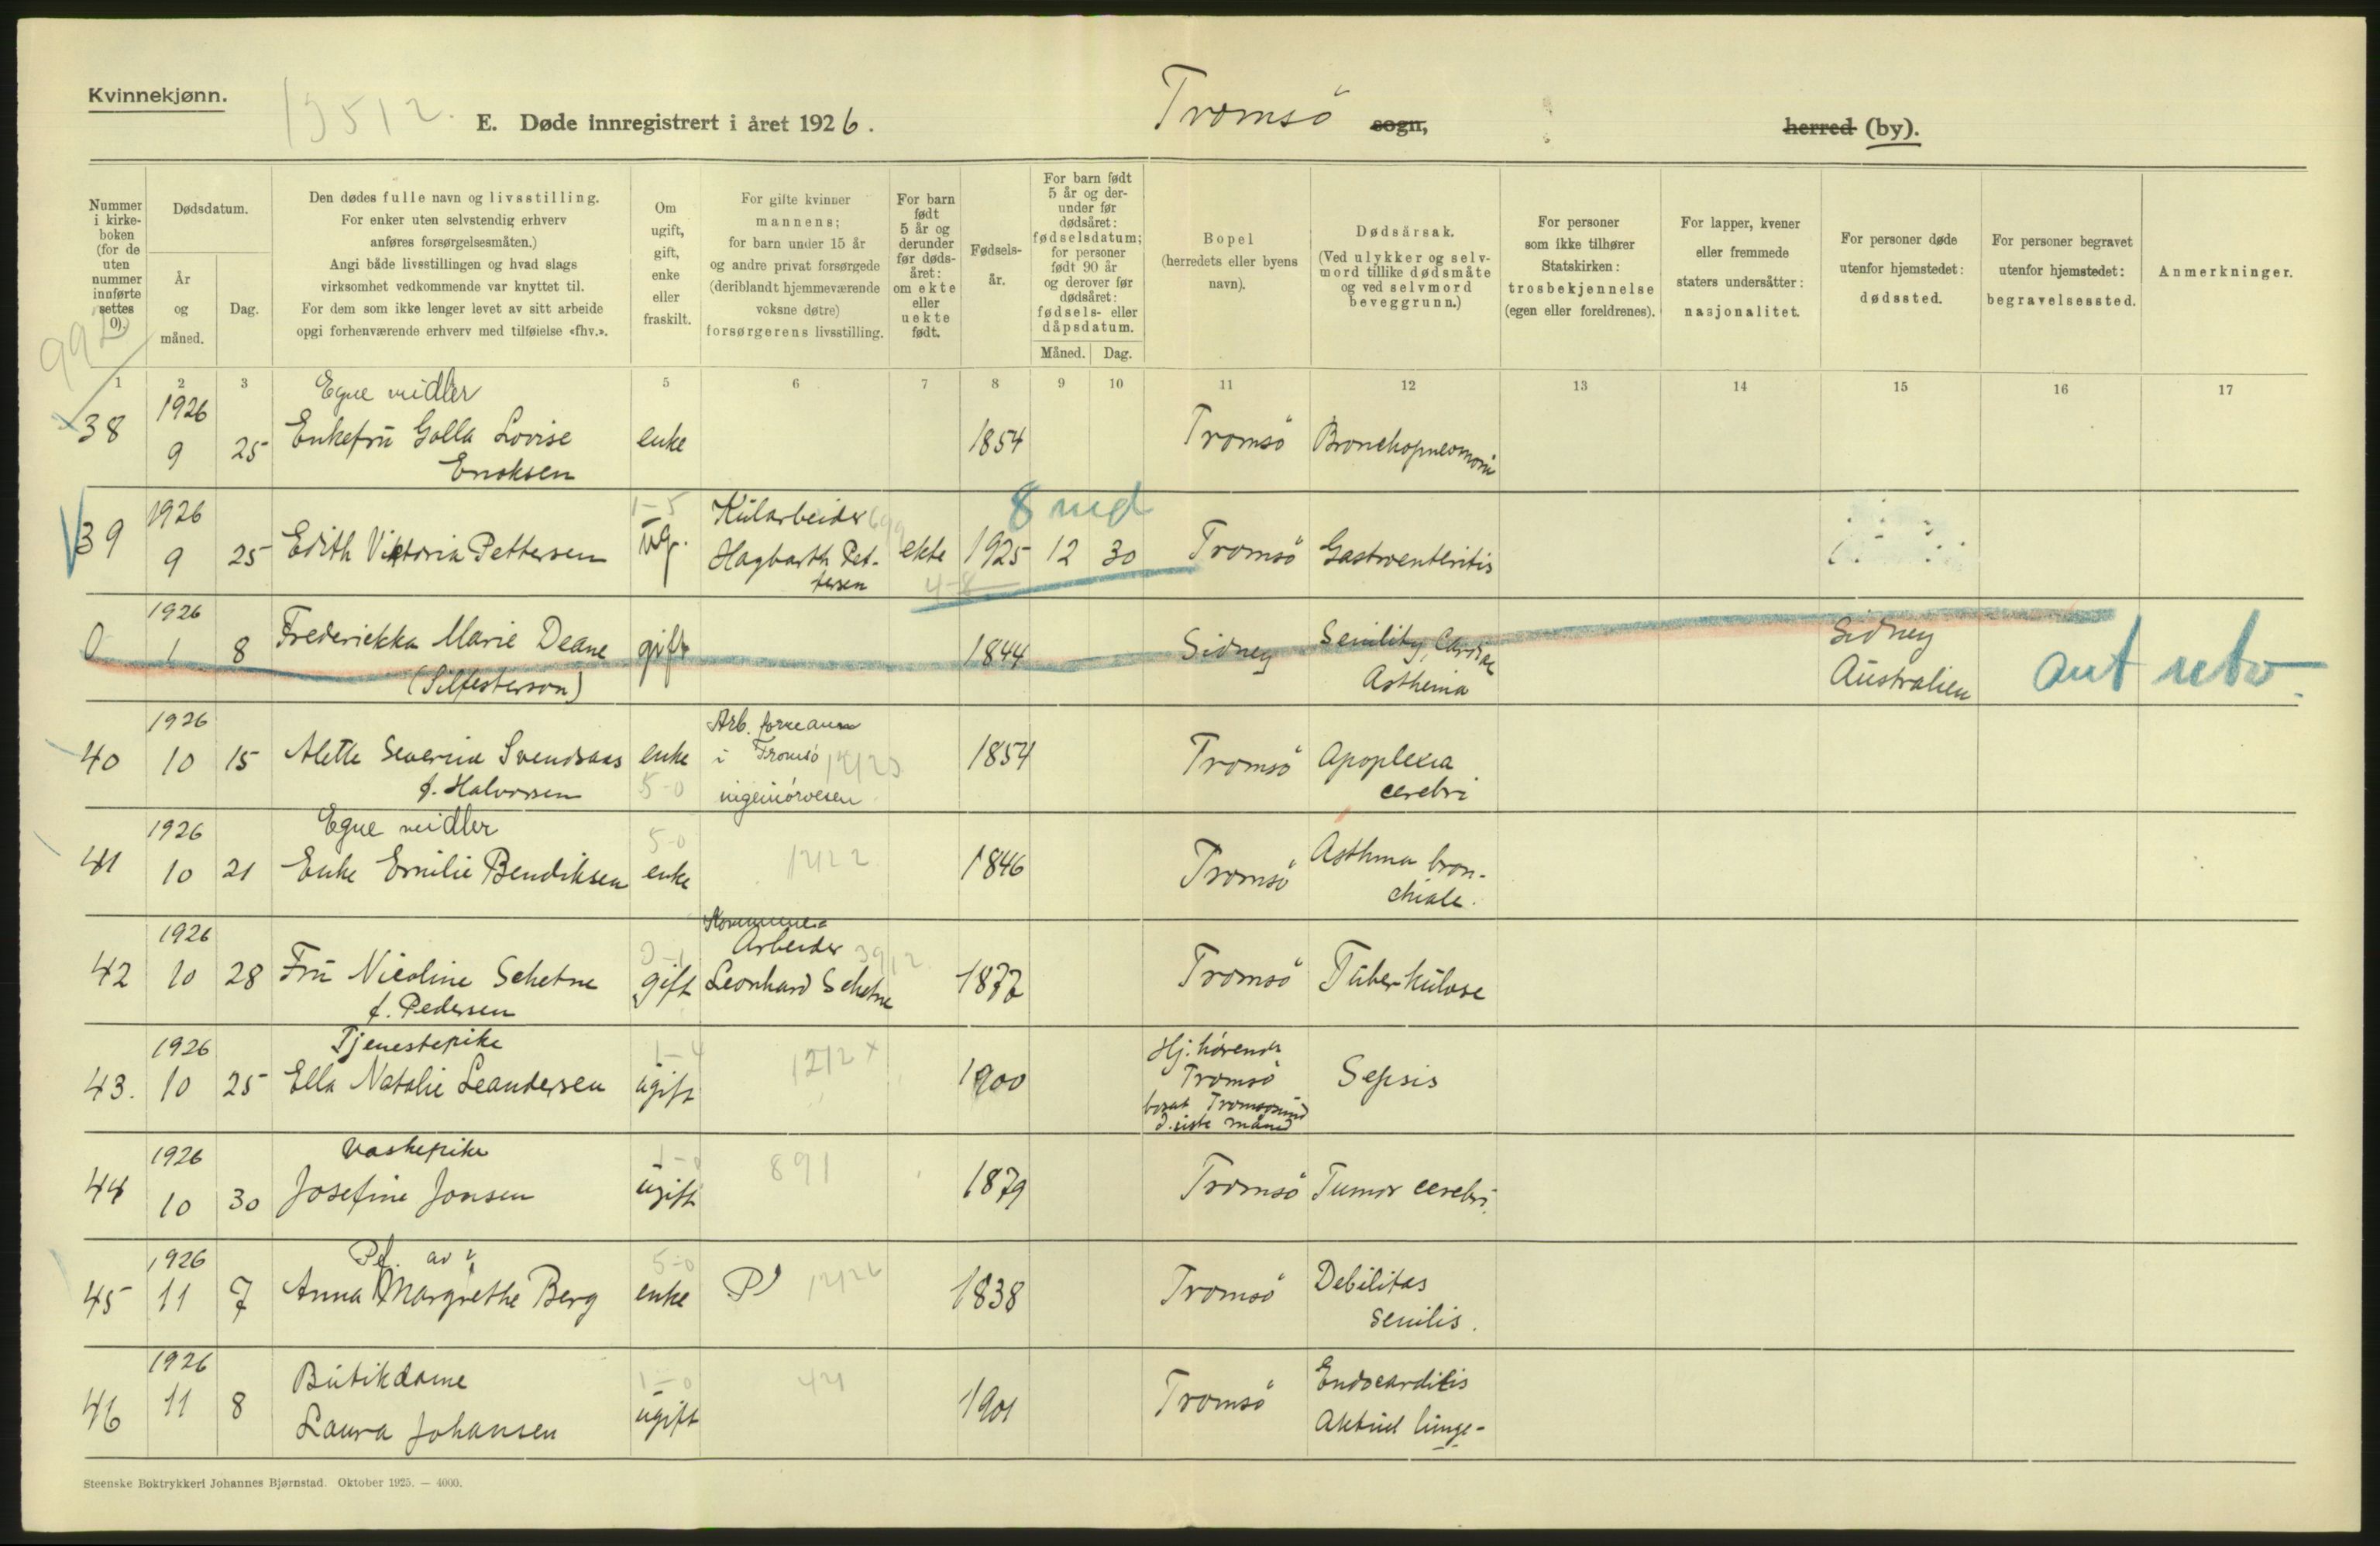 Kvinnekjønn.
19512.
E. Døde innregistrert i året 1926.
Tromsö sogn,
herred (by).
Nummer i kirke-boken (for de uten nummer innførte settes 0).
Dødsdatum.
År og måned.
Dag.
Den dødes fulle navn og livsstilling.
For enker uten selvstendig erhverv
anføres forsørgelsesmåten.)
Angi både livsstillingen og hvad slags
virksomhet vedkommende var knyttet til.
For dem som ikke lenger levet av sitt arbeide
opgi forhenværende erhverv med tilføielse «fhv.».
Om ugift, gift, enke eller fraskilt.
For gifte kvinner
mannens;
for barn under 15 år
og andre privat forsørgede
(deriblandt hjemmeværende
voksne døtre)
forsørgerens livsstilling.
For barn født 5 år og derunder før døds-året: om ekte eller uekte født.
Fødsels-år.
For barn født 5 år og der-under før dødsåret: fødselsdatum; for personer født 90 år og derover før dødsåret: fødsels- eller dåpsdatum.
Måned. Dag.
Bopel
(herredets eller byens
navn).
Dødsårsak.
(Ved ulykker og selv-
mord tillike dødsmåte
og ved selvmord
beveggrunn.)
For personer
som ikke tilhører
Statskirken:
trosbekjennelse
(egen eller foreldrenes).
For lapper, kvener
eller fremmede
staters undersåtter:
nasjonalitet.
For personer døde
utenfor hjemstedet:
dødssted.
For personer begravet
utenfor hjemstedet:
begravelsessted.
Anmerkninger.
1 2 3 5 6 7 8 9 10 11 12 13 14 15 16 17
Egne midler
38 1926 9 25 Enkefru Golla Lovise enke 1854 Tromsö Bronchopneomoni
Enoksen
8 md
39 1926 9 25 Edith Viktoria Pettersen ug. 1-5 Kularbeider ekte 1925 12 30 Tromsö Gastroenteritis
Hagbarth Pet-
tersen
4-8
0 1926 1 8 Frederickka Marie Deane gift 1844 Sidney Senility, Cardiac Sidney
(Silfesterson) Asthenia Australien
40 1926 10 15 Alette Severine Svendsaas enke 5-0 Arb.
i Tromsö
ingeniörvesen 1854 Tromsö Apoplexia
f. Halvorsen cerebri
Egne midler
41 1926 10 21 Enke Emilie Bendiksen 5-0 enke 1212 1846 Tromsö Asthma bron-
chiale.
42 1926 10 28 Fru Nicoline Schetne gift Arbeider
Leonhard Schetne 1877 Tromsö Tuberkulose
f. Pedersen
Tjenestepike
43. 1926 10 25 Ella Natalie Leandersen 1-4 ugift 1212 x 1900 Hj. hörende
Tromsö Sepsis
bosat Tromsösund
d. siste måned
Vaskepike
44 1926 10 30 Josefine Jonsen 1-0 ugift 891 1879 Tromsö Tumor cerebri.
45 1926 11 7 Anna Margrethe Berg 5-0 enke 1838 Tromsö Debilitas
senilis.
Butikdame
46 1926 11 8 Laura Johansen 1-0 ugift 421 1901 Tromsö Endocarditis
Aktuel lunge-
Steenske Boktrykkeri Johannes Bjørnstad. Oktober 1925. — 4000.